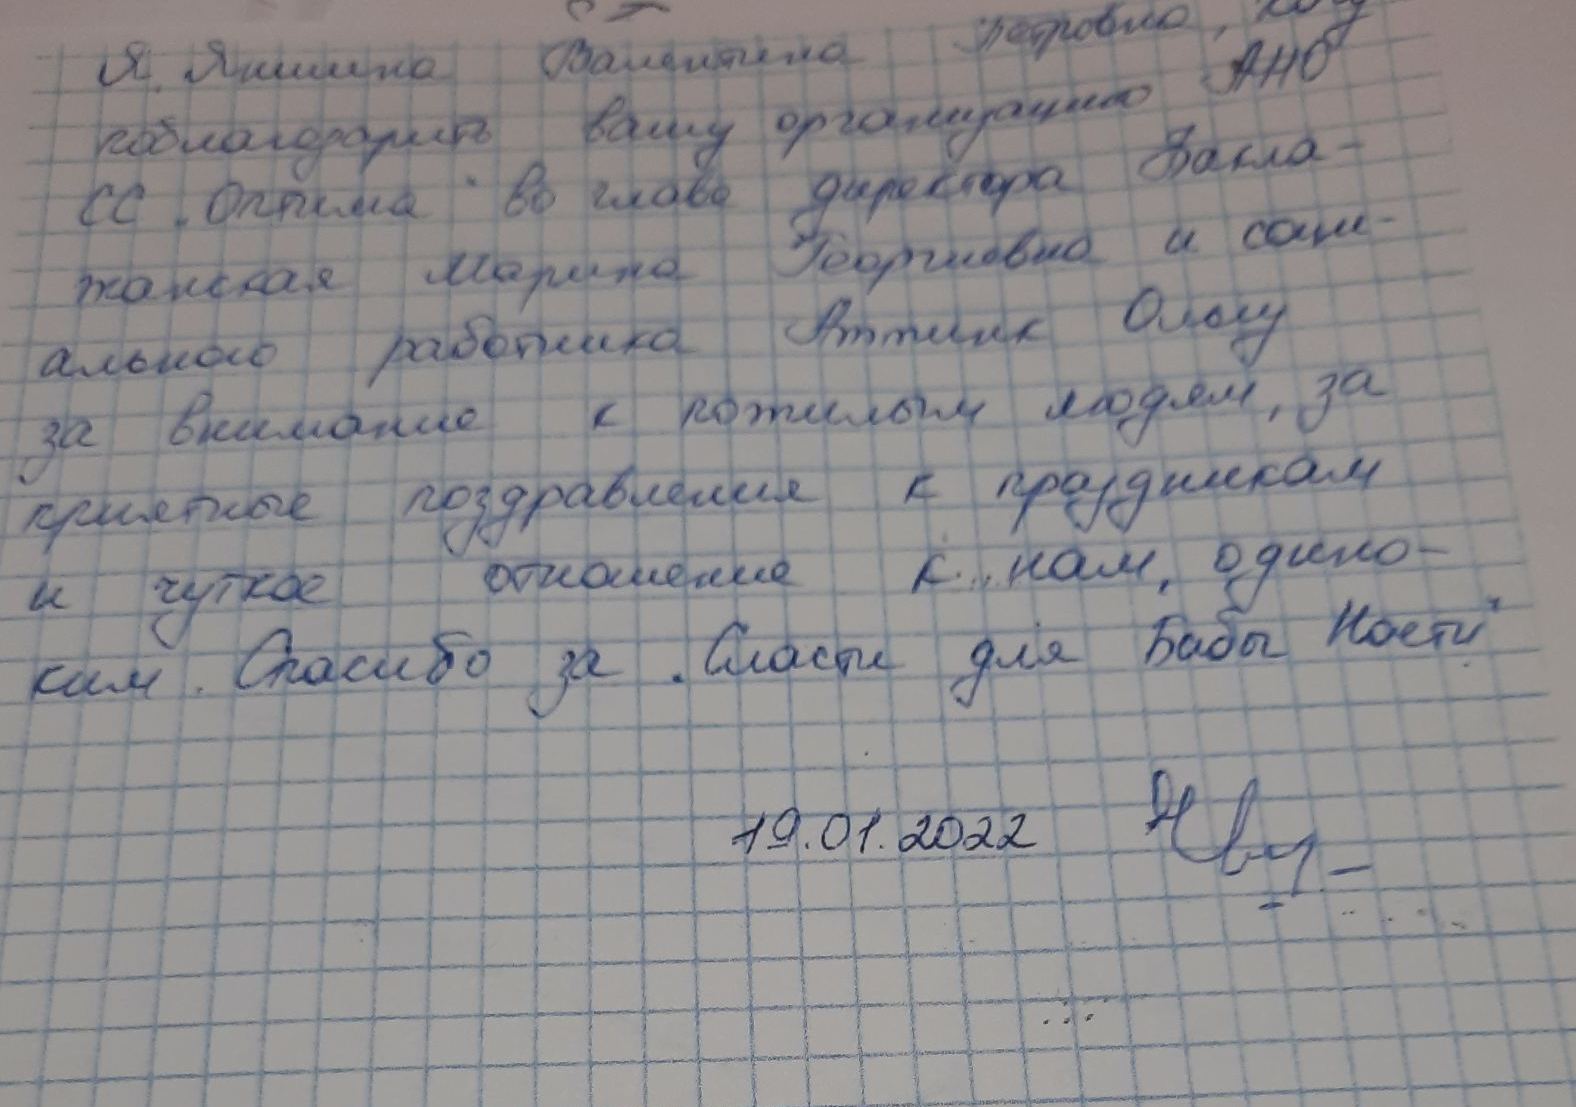 Я, Яншина Валентина Петровна, хочу
поблагодарить вашу организацию АНО
СС "Оптима" во главе директора Вакла-
жанская Марина Георгиевна и соци-
ального работника Аттик Ольгу
за внимание к пожилым людям, за
приятные поздравления к праздникам
и чуткое отношение к "нам, одино-
ким. Спасибо за "Сласти для Бабы Насти"
19.01.2022